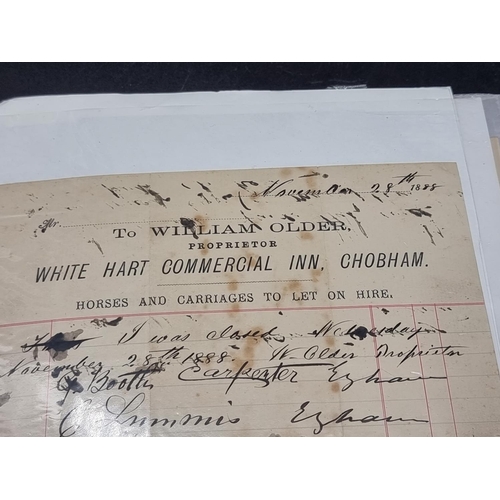 November 28th 1888
Mr.
To WILLIAM OLDER,
PROPRIETOR
WHITE HART COMMERCIAL INN, CHOBHAM.
HORSES AND CARRIAGES TO LET ON HIRE.
I was closed Wednesday
November 28th 1888. W. Older Proprietor
Booth Carpenter Egham
C Lummis Egham